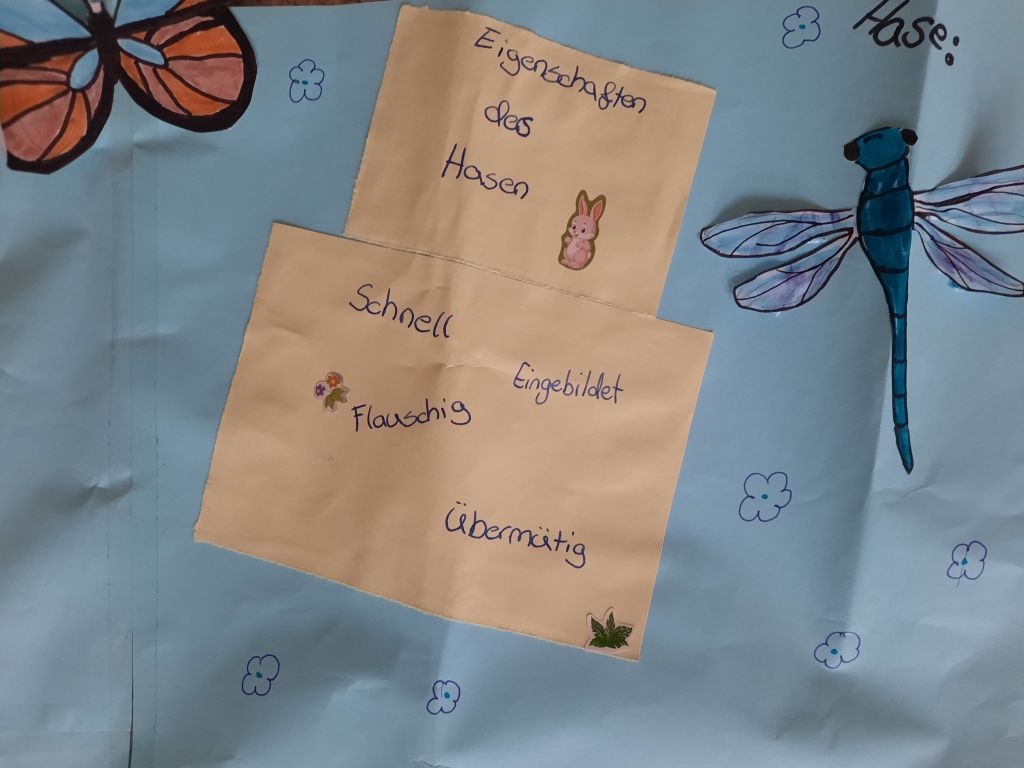 Hase:
Eigenschaften
des
Hasen
Schnell
Eingebildet
Flauschig
Übermütig